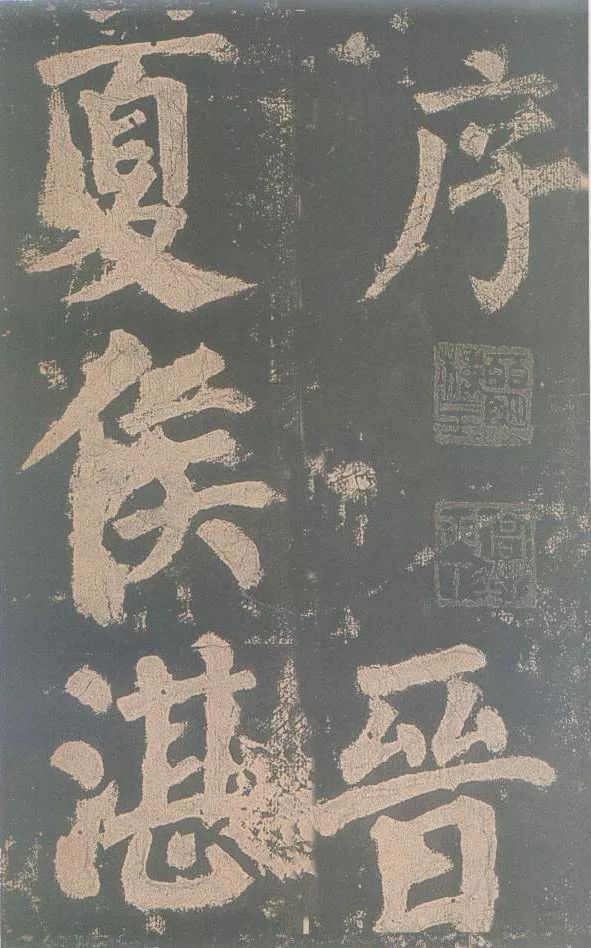 序晉
夏侯湛